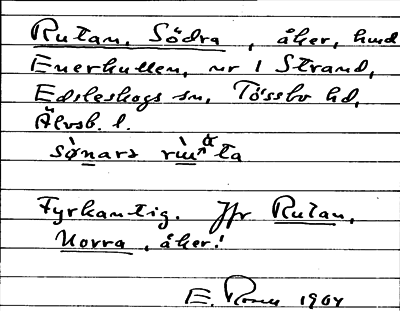 Rutan, Södra, åker, hund
Enerkullen, nr 1 Strand,
Edsleskogs sn, Tössbo hd,
Älvsb. l.
Fyrkantig. Jfr Rutan,
Norra, åker!
E. 1904